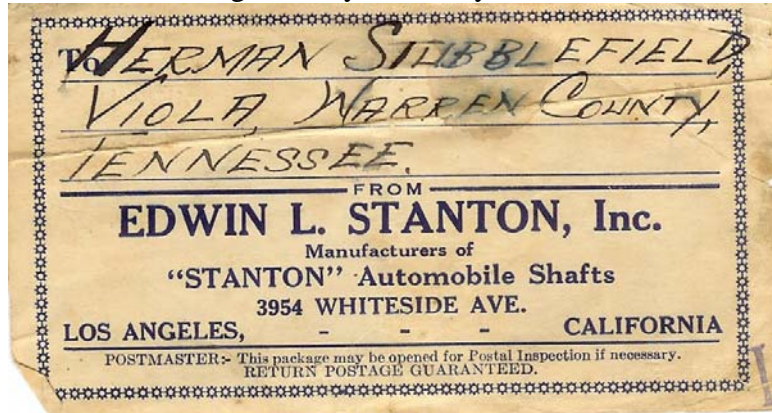 To HERMAN STUBBLEFIELD,
VIOLA, WARREN COUNTY,
TENNESSEE.
FROM
EDWIN L. STANTON, Inc.
Manufacturers of
"STANTON" Automobile Shafts
3954 WHITESIDE AVE.
LOS ANGELES, - - - CALIFORNIA
POSTMASTER:- This package may be opened for Postal Inspection if necessary.
RETURN POSTAGE GUARANTEED.